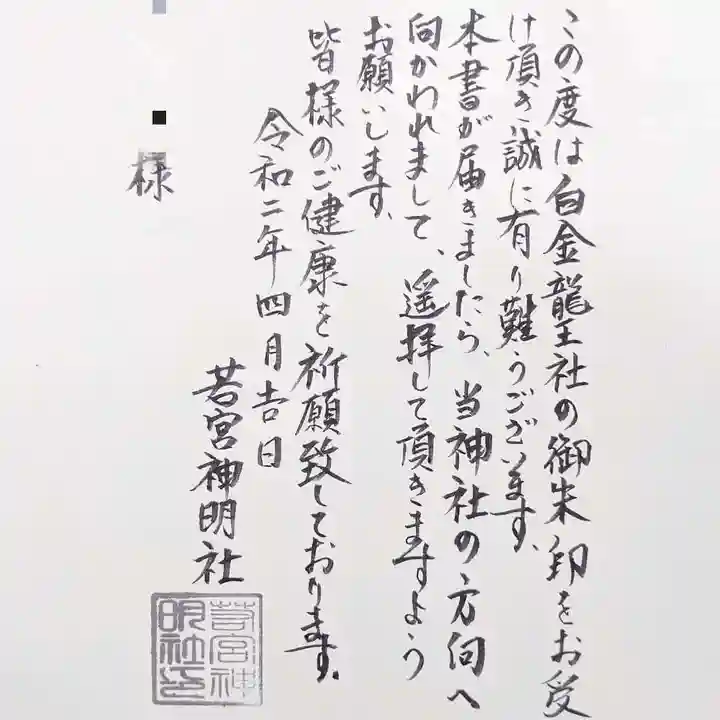 この度は白金龍王社の御朱印をお受
け頂き誠に有り難うございます、
本書が届きましたら、当神社の方向へ
向かわれまして、遥拝して頂きますよう
お願いします、
皆様のご健康を祈願致しております、
令和二年四月吉日
若宮神明社
様
若宮神
明社之印